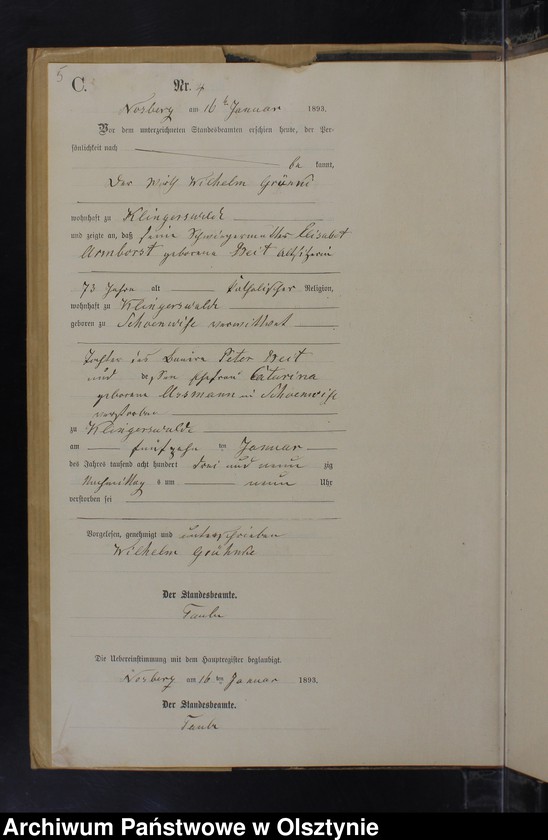 5
C.
Nr. 4
Nosberg am 16t Januar 1893.
Vor dem unterzeichneten Standesbeamten erschien heute, der Per-
sönlichkeit nach
be kannt,
Der Wilhelm
wohnhaft zu Klingerswalde
und zeigte an, daß seine Schwiegermutter Elisabet
Armborst geborene Beit Altsitzerin
73 Jahre alt katholischer Religion,
wohnhaft zu Klingerswalde
geboren zu Schoenwise verwittwet
Tochter des Bauern Peter Beit
und dessen Ehefrau Caturina
geborene Assmann in Schoenwise
verstorben
zu Klingerswalde
am fünfzehn ten Januar
des Jahres tausend acht hundert drei und neun zig
Nachmittag s um neun Uhr
verstorben sei
Vorgelesen, genehmigt und unterschrieben
Wilhelm Grühnke
Der Standesbeamte.
Taube
Die Uebereinstimmung mit dem Hauptregister beglaubigt.
Nosberg am 16 ten Januar 1893.
Der Standesbeamte.
Taube
Archiwum Państwowe w Olsztynie